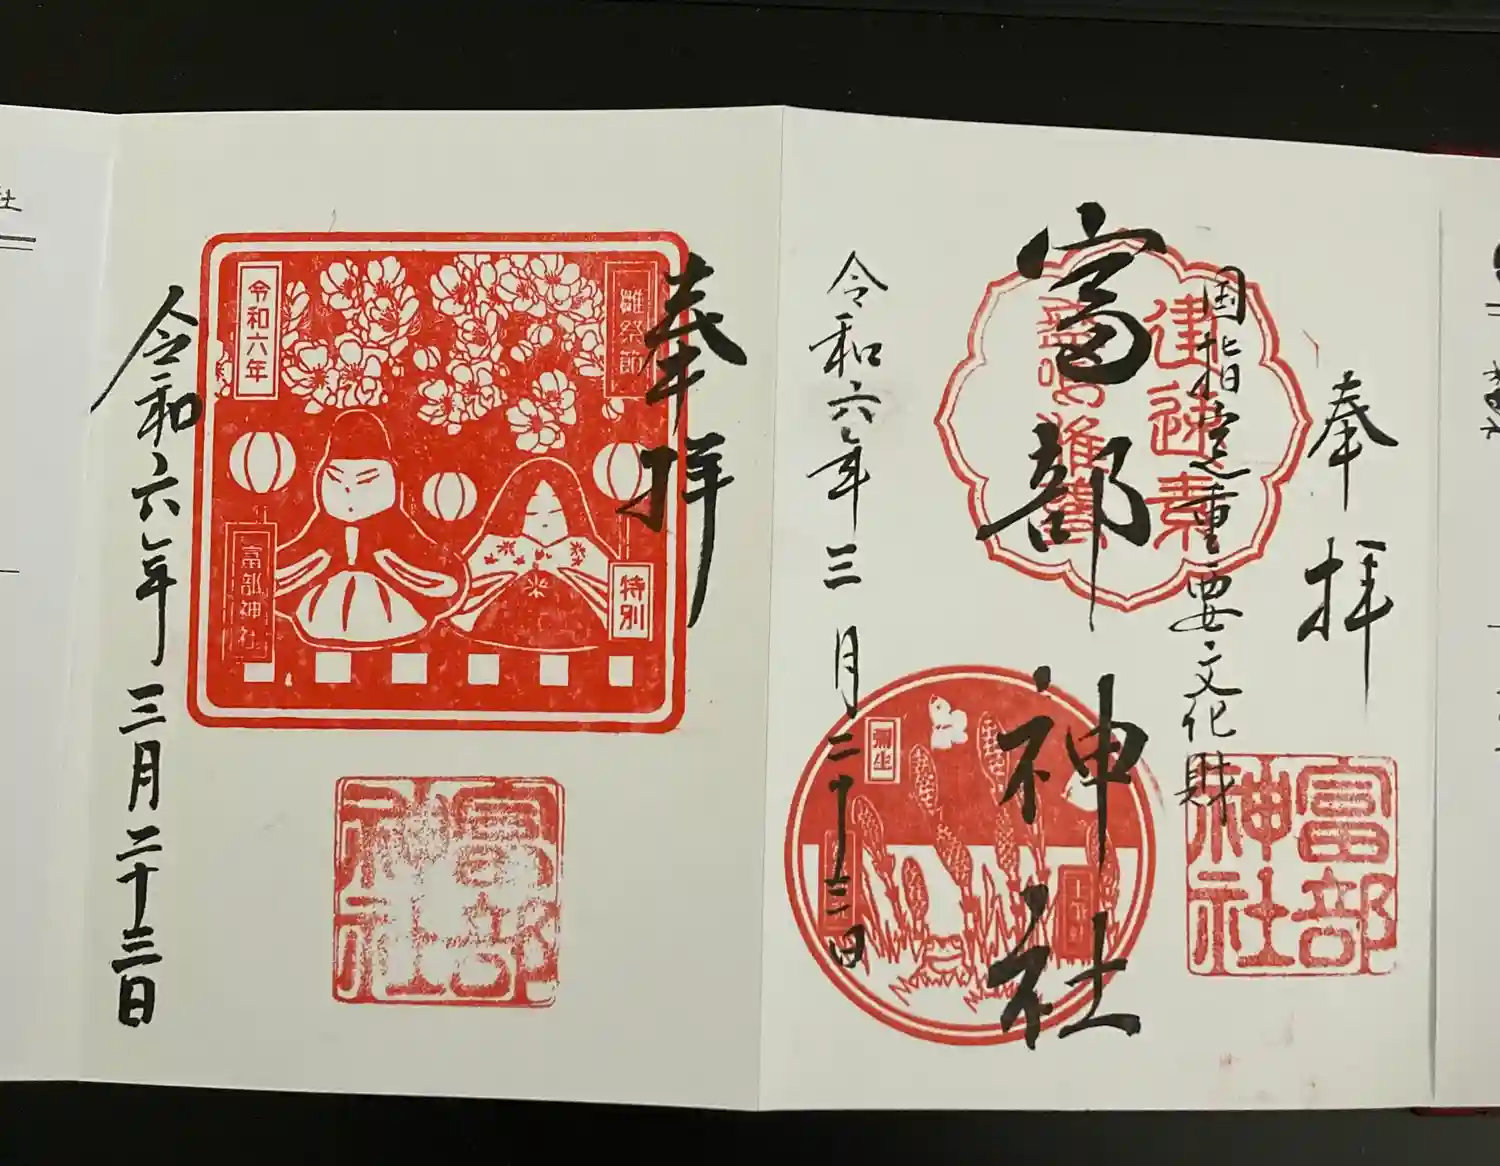 奉拝
国指定重要文化財
富部神社
建速素
盞嗚雄尊
富部
神社
弥生
令和六年三月二十三日
奉拝
雛祭節
特別
令和六年
富部神社
富部
神社
令和六年三月二十三日
社